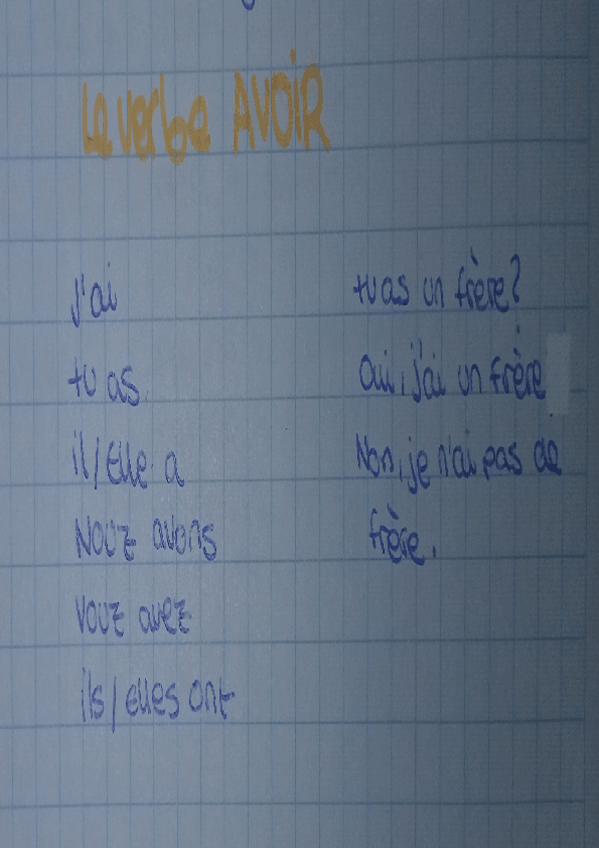 Le verbe AVOIR
j'ai
tu as
il/Elle a
Nouz avons
Vouz avez
ils/Elles ont
tu as un frère?
Oui, j'ai un frère
Non, je n'ai pas de
frère.